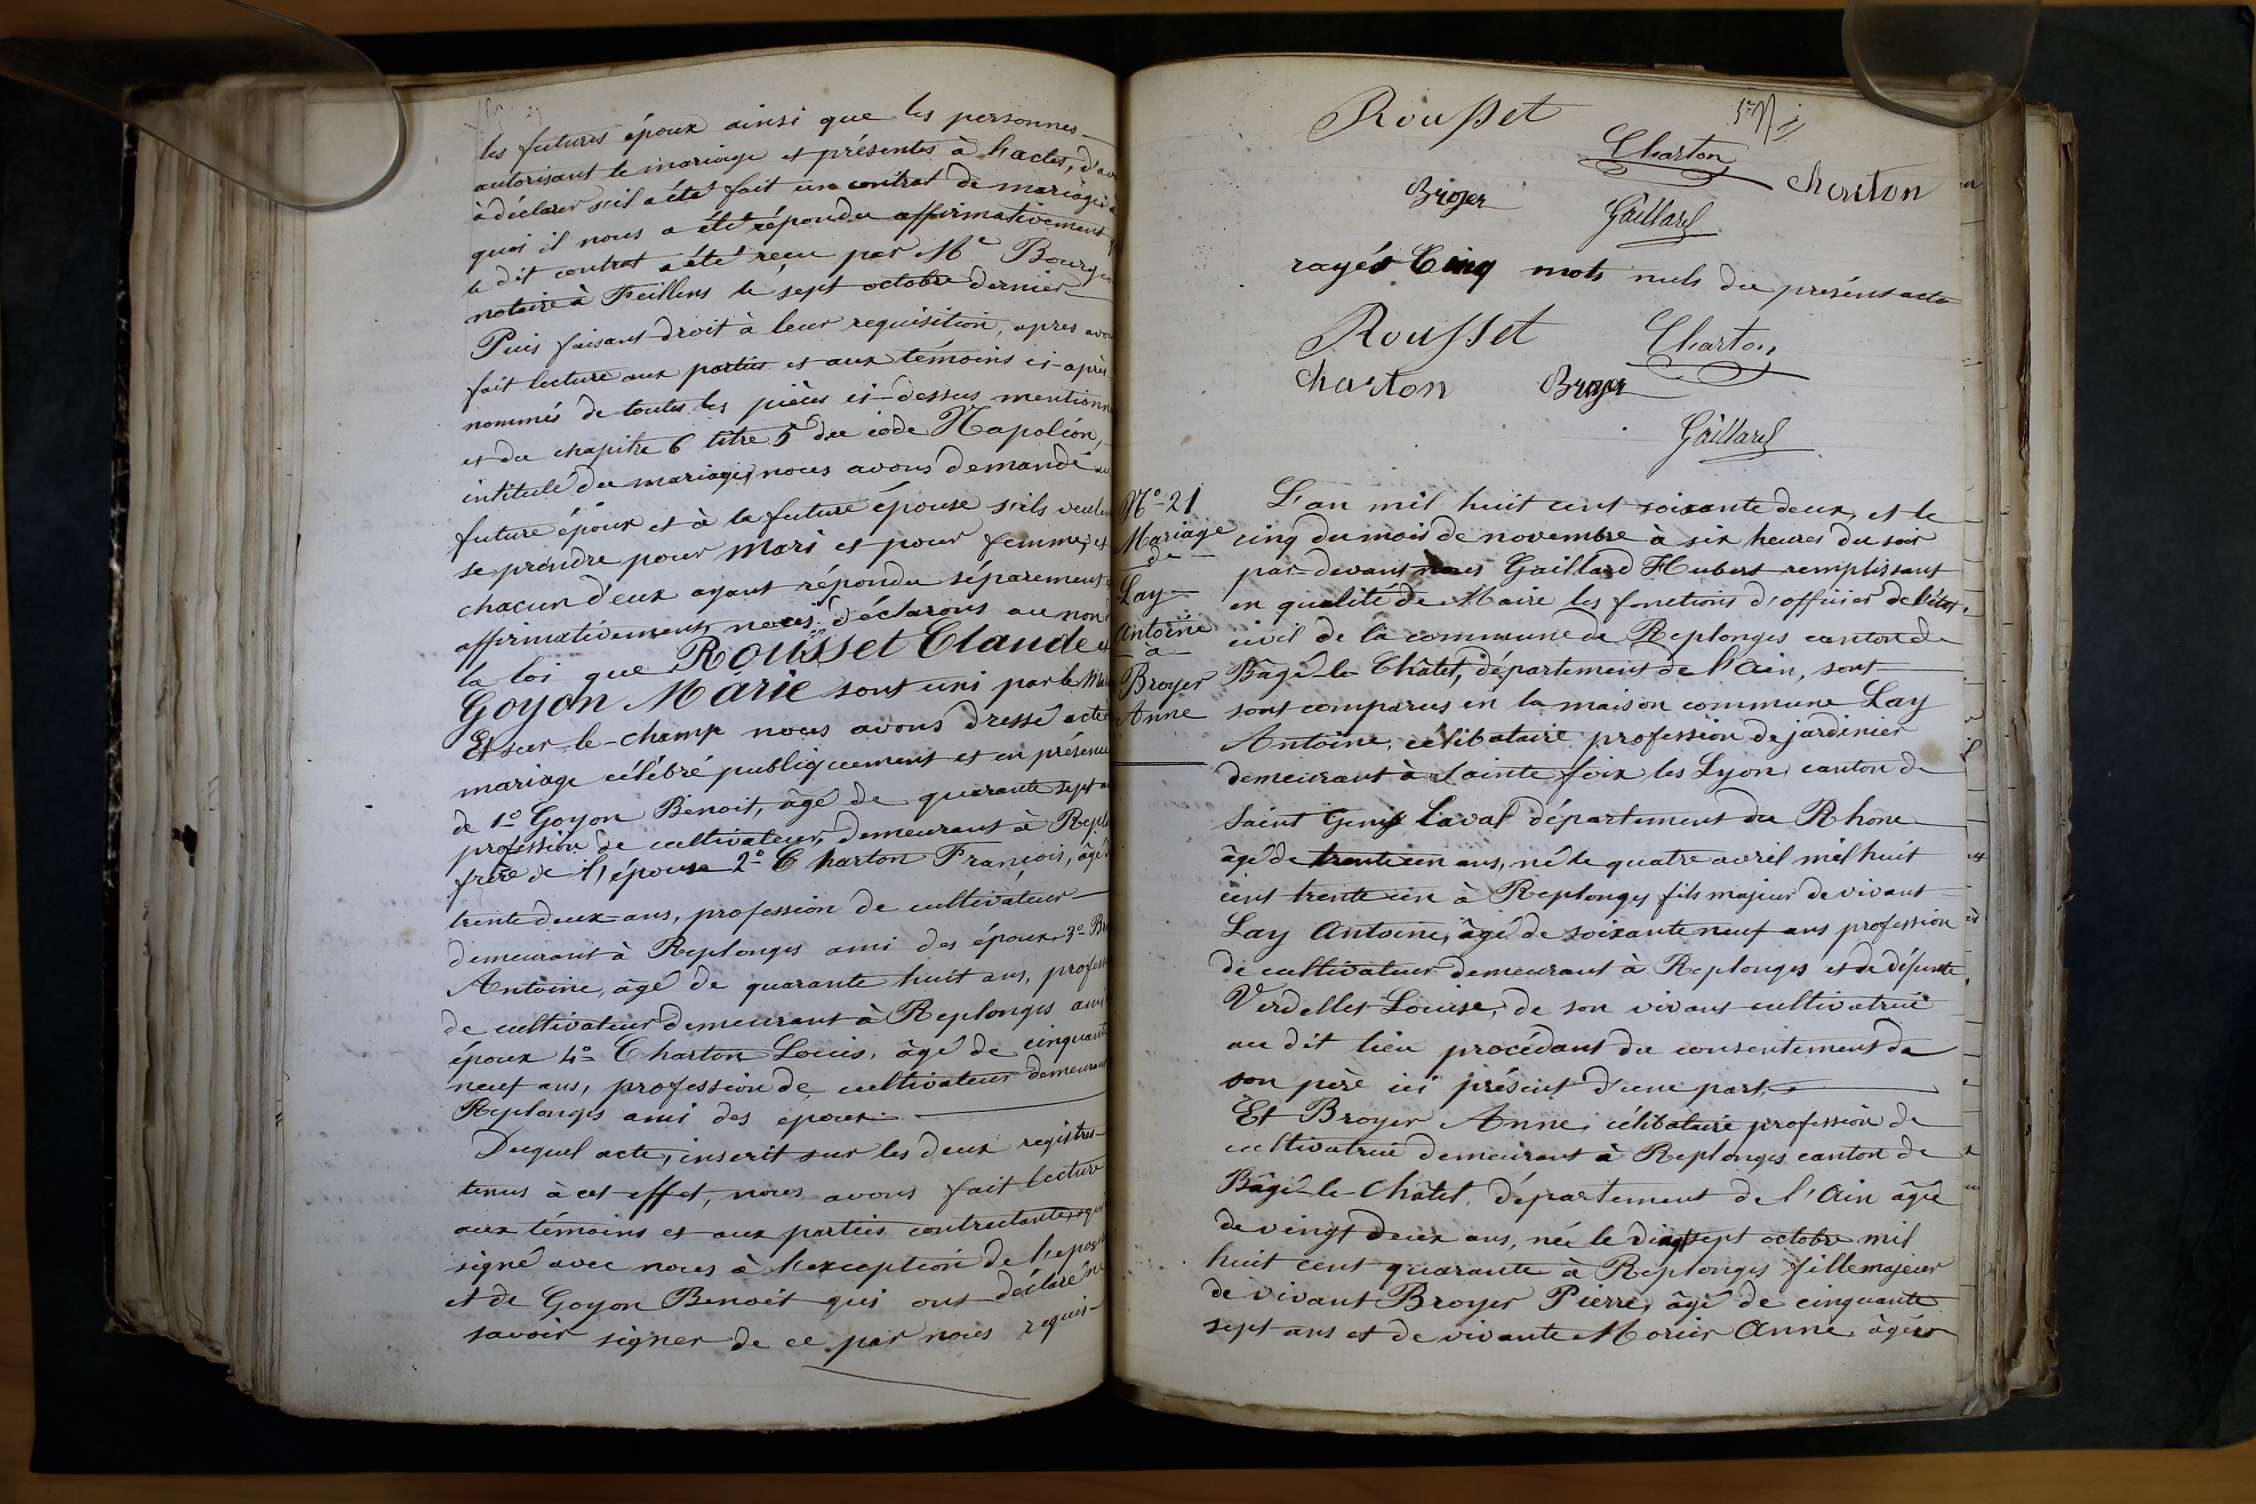 les futures époux ainsi que les personnes
autorisant le mariage et présentes à l'actes, d'av
à déclarer s'il a été fait un contrat de mariage, à
quoi il nous a été répondu affirmativement
le dit contrat a été reçu par Me Bourg
notaire à Feillens le sept octobre dernier
Puis faisant droit à leur requisition, apres avo
fait lecture aux parties et aux témoins ci-après
nommés de toutes les pièces ci-dessus mentionn
et du chapitre 6 titre 5 du code Napoléon,
intitulé du mariage, nous avons demandé au
future époux et à la future épouse s'ils veulen
se prendre pour mari et pour femme, et
chacun d'eux ayant répondu séparement
affirmativement, nous déclarons au nom
la loi que Rousset Claude et
Goyon Marie sont uni par le Mar
Et sur-le-champ nous avons dressé acte
mariage célébré publiquement et en présence
de 1º Goyon Benoit, âgé de quarante sept a
profession de cultivateur, demeurant à Repl
frère de l'épouse 2º Charton François, âgé
trente deux ans, profession de cultivateur
demeurant à Replonges ami des époux 3º Br
Antoine, âgé de quarante huit ans, profess
de cultivateur demeurant à Replonges ami
époux 4º Charton Louis, âgé de cinquante
neuf ans, profession de cultivateur demeurant
Replonges ami des epoux.
Duquel acte, inscrit sur les deux registres
tenus à cet effet, nous avons fait lecture
aux témoins et aux parties contractantes, qui
signé avec nous à l'exception de l'epouse
et de Goyon Benoit qui ont déclaré ne
savoir signer de ce par nous requis
Rousset
Charton
Charton
Broyer
Gaillard
rayés Cinq mots nuls du présent acte
Rousset Charton
Charton Broyer
Gaillard
Nº 21
Mariage
de
Lay
Antoine
à
Broyer
Anne
L'an mil huit cent soixante deux, et le
cinq du mois de novembre à six heures du soir
par-devant nous Gaillard Hubert remplissant
en qualité de Maire les fonctions d'officier de l'état
civil de la commune de Replonges canton de
Bâgé-le-Châtel, département de l'Ain, sont
sont comparus en la maison commune Lay
Antoine, célibataire profession de jardinier
demeurant à Sainte foix les Lyon, canton de
Saint Genis Laval département du Rhône
âgé de trente un ans, né le quatre avril mil huit
cent trente un à Replonges fils majeur de vivant
Lay Antoine, âgé de soixante neuf ans profession
de cultivateur demeurant à Replonges et de défunte
Verdellet Louise, de son vivant cultivatrice
au dit lieu procédant du consentement de
son père ici présent d'une part.
Et Broyer Anne, célibataire profession de
cultivatrice demeurant à Replonges canton de
Bâgé-le-Châtel, département de l'Ain âgée
de vingt deux ans, née le dix sept octobre mil
huit cent quarante à Replonges fille majeur
de vivant Broyer Pierre, âgé de cinquante
sept ans et de vivante Morier Anne, âgée